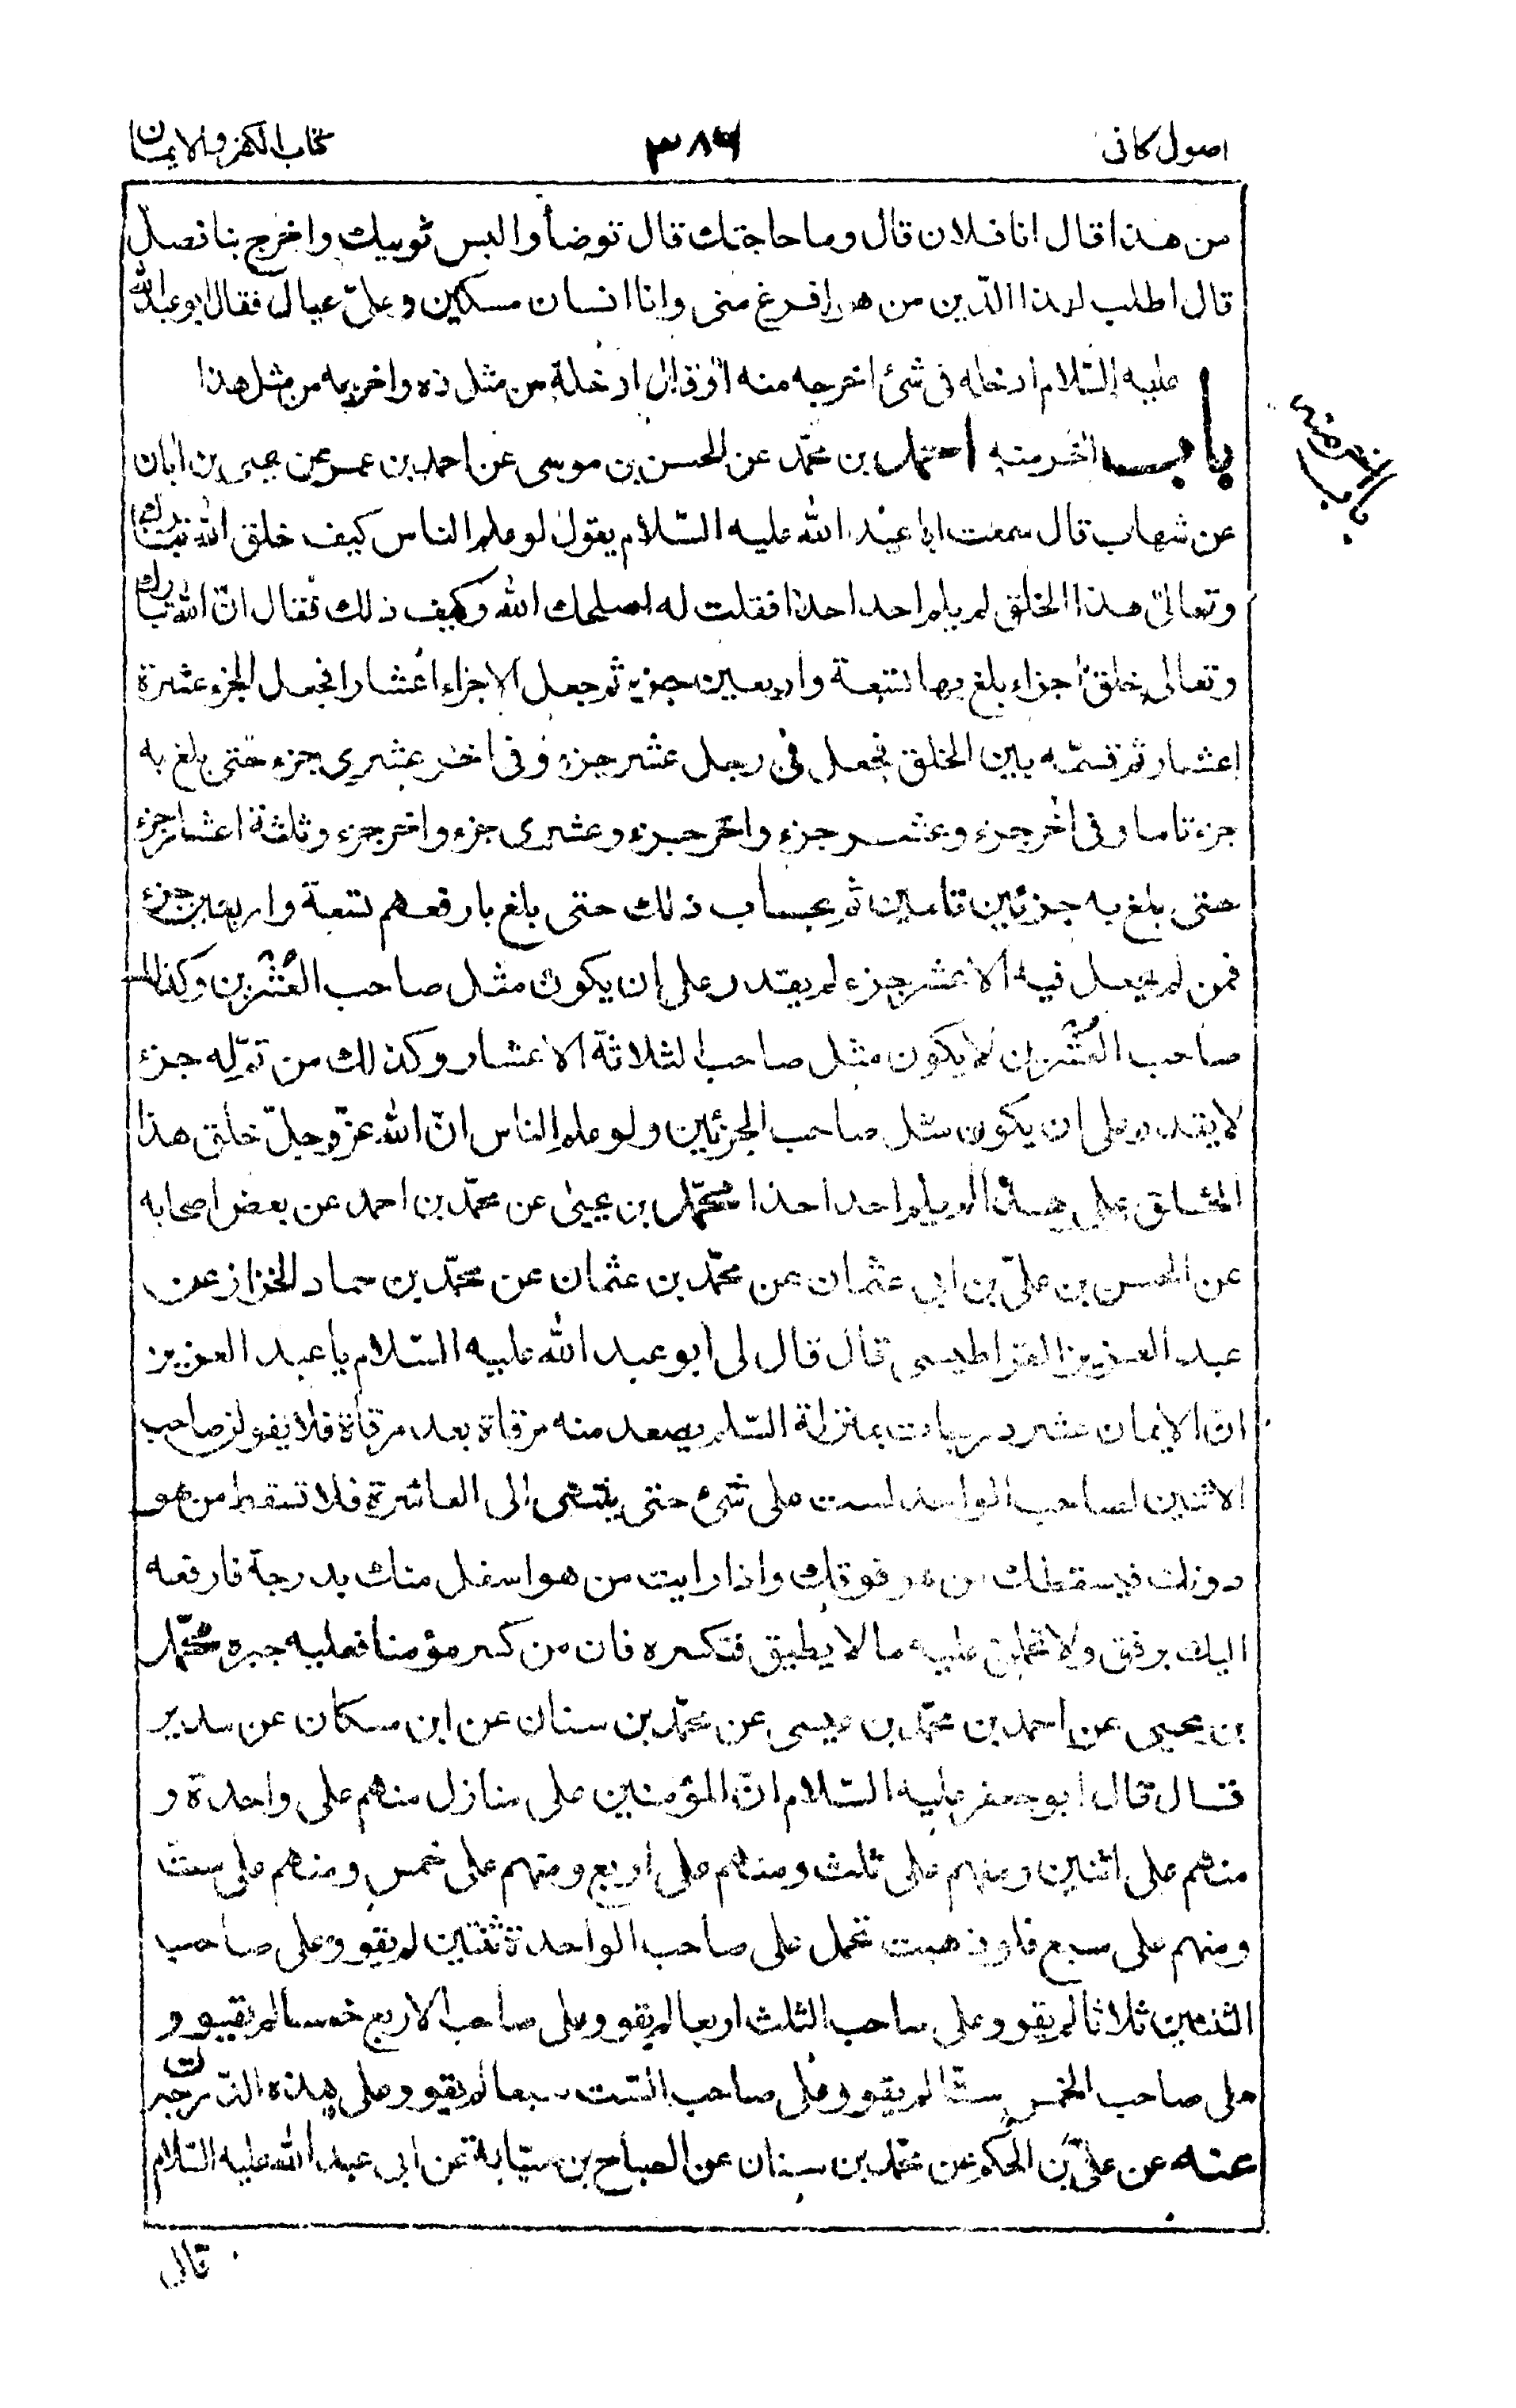 اصول كافى
٣٨٦
كتاب الكفر والايمان
من هذا قال انا فلان قال وما حاجتك قال توضأ والبس ثوبيك واخرج بنا نصلّ
قال اطلب لهذا الدّين من هو افرغ منى وانا انسان مسكين وعلىّ عيال فقال ابو عبدالله
عليه السّلام ادخله فى شئ اخرجه منه او قال ادخلة من مثل ذه واخرجه من مثل هذا
باب اخر منه
باب اخر منه احمد بن محمّد عن الحسن بن موسى عن احمد بن عمر عن يحيى بن ابان
عن شهاب قال سمعت ابا عبد الله عليه السّلام يقول لو علم الناس كيف خلق الله تبارك
وتعالى هذا الخلق لم يلم احد احدا فقلت له اصلحك الله وكيف ذلك فقال انّ الله تبارك
وتعالى خلق اجزاء بلغ بها تسعة واربعين جزء ثم جعل الاجزاء اعشارا فجعل الجزء عشرة
اعشار ثم قسّمه بين الخلق فجعل فى رجل عشر جزء وفى اخر عشرى جزء حتى بلغ به
جزء تاما وفى اخر جزء وعشر جزء واخر جزء وعشرى جزء واخر جزء وثلثة اعشار جزء
حتى بلغ به جزئين تامين ثم بحساب ذلك حتى بلغ بارفعهم تسعة واربعين جزء
فمن لم يجعل فيه الا عشر جزء لم يقدر على ان يكون مثل صاحب العُشْرين وكذلك
صاحب العُشْرين لا يكون مثل صاحب الثلاثة الاعشار وكذلك من تمّ له جزء
لا يقدر على ان يكون مثل صاحب الجزئين ولو علم الناس انّ الله عزّ وجلّ خلق هذا
الخلق على هذا لم يلم احد احدا محمّد بن يحيى عن محمّد بن احمد عن بعض اصحابه
عن الحسن بن علىّ بن ابى عثمان عن محمّد بن عثمان عن محمّد بن حماد الخزاز عن
عبد العزيز القراطيسى قال قال لى ابو عبد الله عليه السّلام يا عبد العزيز
انّ الايمان عشر درجات بمنزلة السّلم يصعد منه مرقاة بعد مرقاة فلا يقولن صاحب
الاثنين لصاحب الواحد لست على شئ حتى ينتهى الى العاشرة فلا تسقط من هو
دونك فيسقطك من هو فوقك واذا رايت من هو اسفل منك بدرجة فارفعه
اليك برفق ولا تحملن عليه ما لا يطيق فتكسره فان من كسر مؤمنا فعليه جبره محمّد
بن يحيى عن احمد بن محمّد بن عيسى عن محمّد بن سنان عن ابن مسكان عن سدير
قال قال ابو جعفر عليه السّلام انّ المؤمنين على منازل منهم على واحدة و
منهم على اثنين ومنهم على ثلث ومنهم على اربع ومنهم على خمس ومنهم على ستّ
ومنهم على سبع فلو ذهبت تحمل على صاحب الواحدة ثنتين لم يقو وعلى صاحب
الثنتين ثلاثا لم يقو وعلى صاحب الثلث اربعا لم يقو وعلى صاحب الاربع خمسا لم يقو و
على صاحب الخمس ستّا لم يقو وعلى صاحب الستّ سبعا لم يقو وعلى هذه الدّرجات
عنه عن علىّ بن الحكم عن محمّد بن سنان عن الصباح بن سيّابة عن ابى عبد الله عليه السّلام
قال